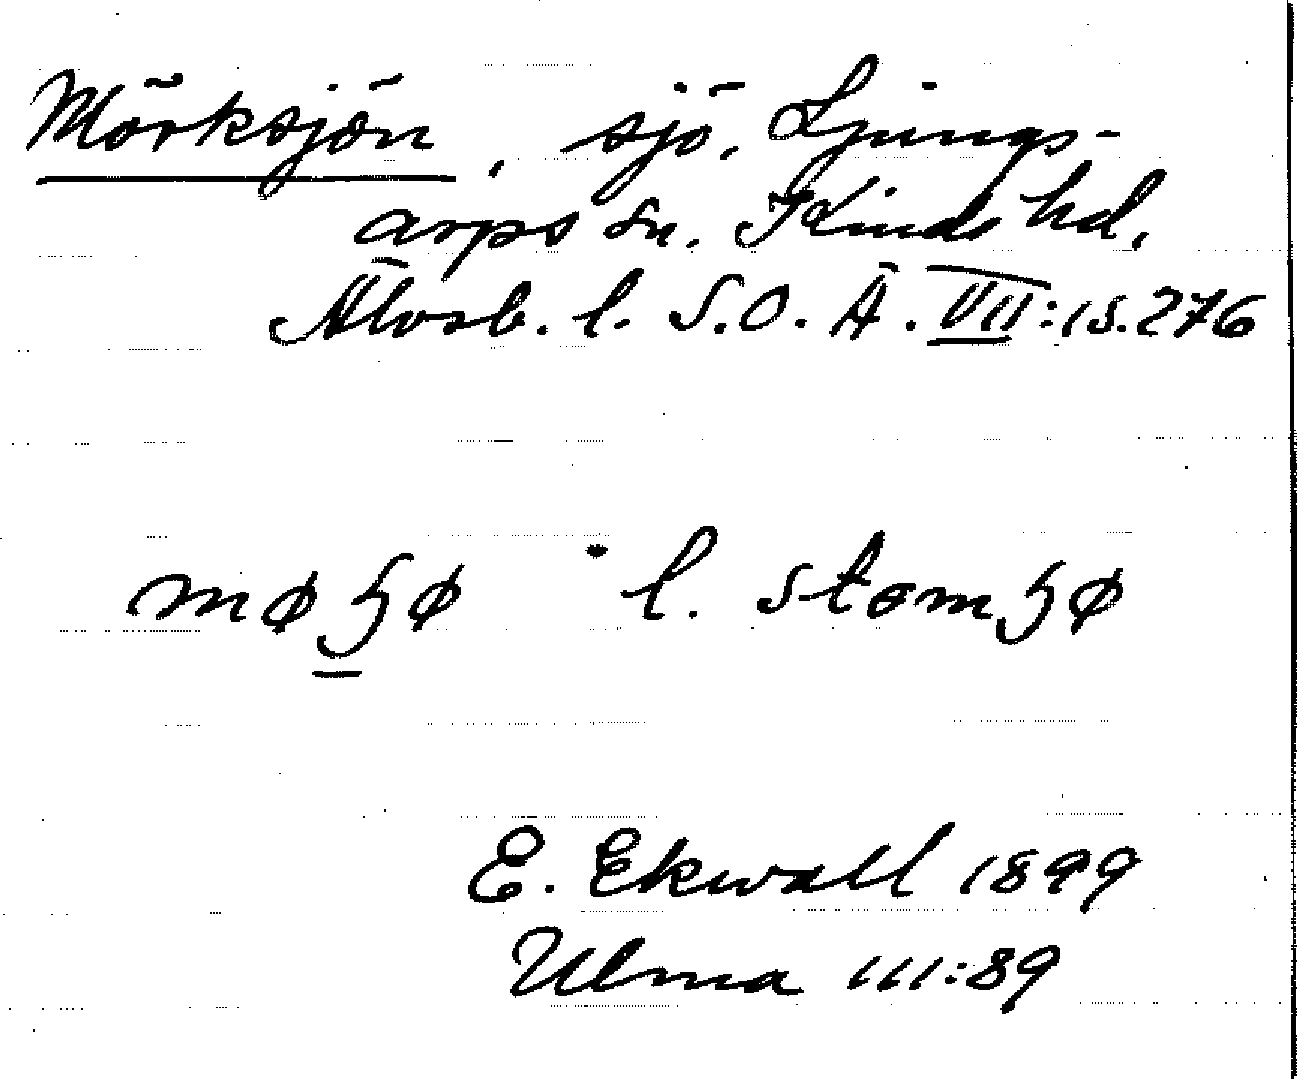 Mörksjön, sjö, Ljungs-
arps sn. Kinds hd,
Älvsb. l. S.O.Ä. VII:1 s. 276
møʃø l. stɵmʃø
E. Ekwall 1899
Ulma 111:89